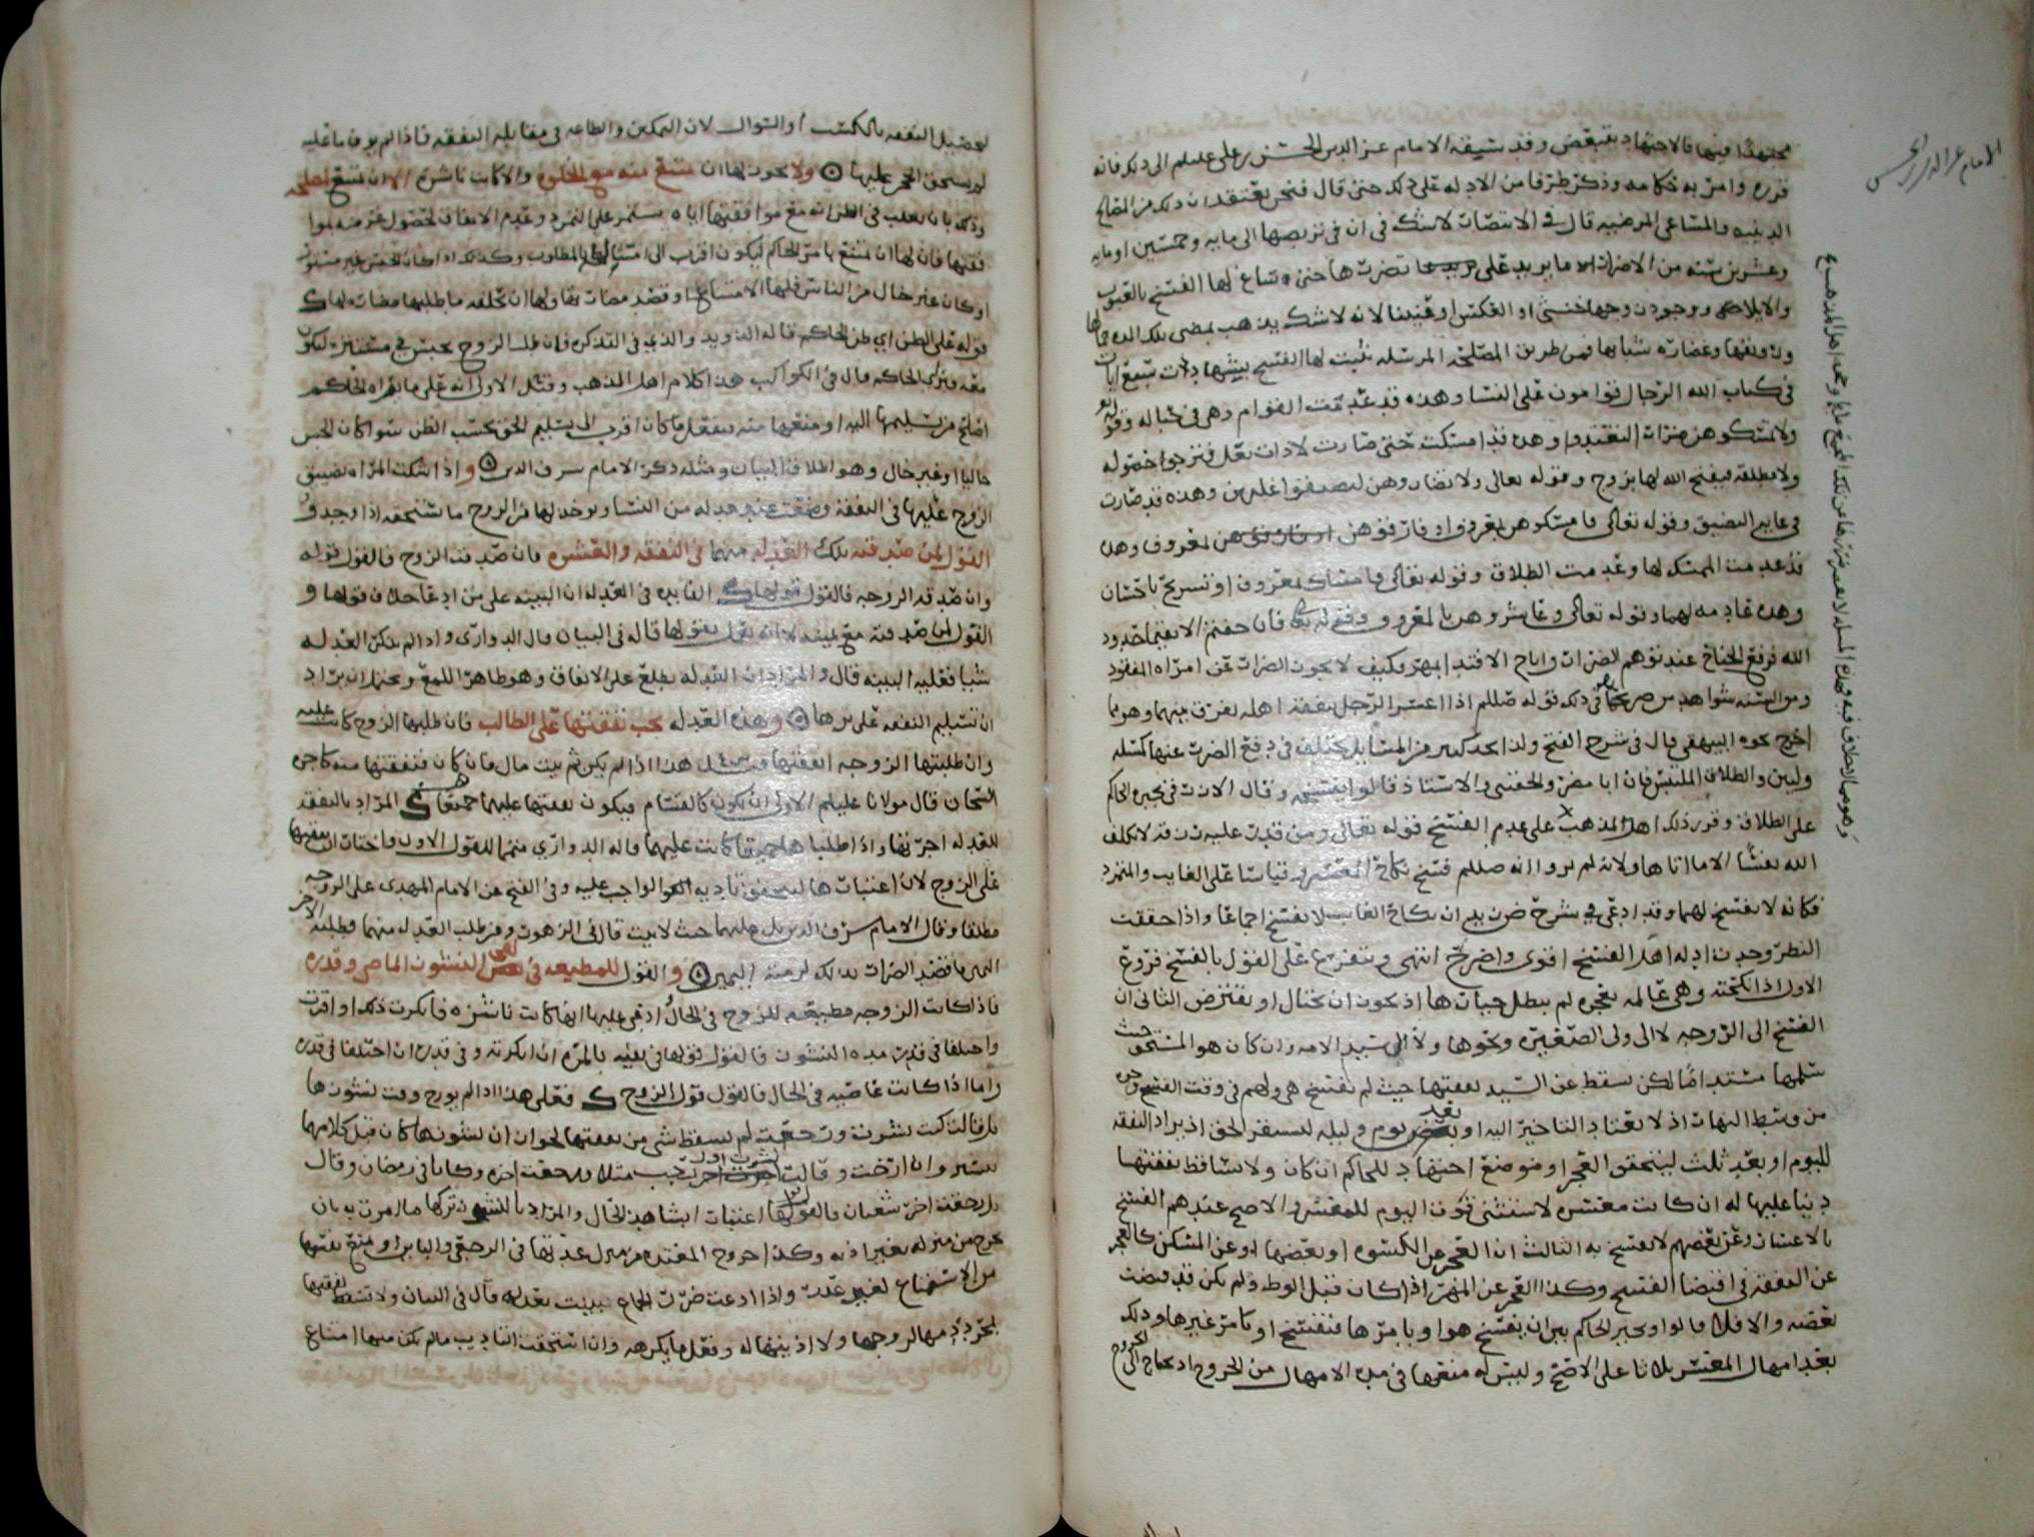 مجتهدا فيها فالاجتهاد ينقض وقد سبقه الامام عز الدين الحسن بن علي عليلم الى ذلك فانه
قرره وامر به حكامه وذكر طرفا من الادله على ذلك حتى قال فنحن نعتقد ان ذلك من المصالح
الدينيه والمساعي المرضيه قال في الانتصار لا شك في ان في تربصها الى مايه وخمسين او مايه
وعشرين سنه من الاضرار ما يزيد على تضررها حتى ساغ لها الفسخ بالعيوب
والايلاء ووجود زوجها خنثى او او قنينا لانه لا شك يذهب بمضي تلك المده
ورونقها وغضارة شبابها فمن طريق المصلحه المرسله يثبت لها الفسخ
في كتاب الله الرجال قوامون على النسا وهذه قد عدمت القوام وهي في حباله وقوله
ولا تمسكوهن ضرارا لتعتدوا وهذه قد امسكت حتى صارت لا ذات بعل فترجوا حصوله
ولا مطلقه فيفتح الله لها بزوج وقوله تعالى ولا تضاروهن لتضيقوا عليهن وهذه قد صارت
في غاية التضييق وقوله تعالى فامسكوهن بمعروف او فارقوهن بمعروف وهذه
قد عدمت الممسك لها وعدمت الطلاق وقوله تعالى فامساك بمعروف او تسريح باحسان
وهذه عادمه لهما وقوله تعالى وعاشروهن بالمعروف وقوله تعالى فان خفتم الا يقيما حدود
الله فرفع الجناح عند توهم الضرار واباح الافتدا بالمهر فكيف لا يجوز الضرار عن امراه المفقود
ومن السنه شواهد من صريحها في ذلك قوله صللم اذا اعسر الرجل بنفقة اهله يفرق بينهما وهو مما
اخرج نحوه البيهقي قال في شرح الفتح ولذا نجد كثير من المسايل يختلف في دفع الضرر عنها كمسله
ولين والطلاق الملتبس فان ابا مضر والحقيني والاستاذ قالوا بفسخه وقال الازرقي يجبره الحاكم
على الطلاق وقرر ذلك اهل المذهب على عدم الفسخ قوله تعالى ومن قدر عليه رزقه لا يكلف
الله نفسا الا ما اتاها ولانه لم يروا انه صللم فسخ نكاح المعسر وقياسا على الغايب والمتمرد
فكانه لا يفسخ لهما وقد ادعى في شرح ض زيد ان نكاح الغايب لا يفسخ اجماعا واذا حققت
النظر وجدت ادله اهل الفسخ اقوى واصرح انتهى ويتفرع على القول بالفسخ فروع
الاول اذا نكحته وهي عالمه بعجزه لم يبطل خيارها اذ يجوز ان يحتال او يقترض الثاني ان
الفسخ الى الزوجه لا الى ولي الصغيره ونحوها ولا الى سيد الامه وان كان هو المستحق حيث
سلمها مستداما لكن سقط عن السيد نفقتها حيث لم تفسخ هي
من وسط النهار اذ لا يعتاد التاخير اليه او بعد يوم وليله ليستقر الحق اذ يراد النفقه
لليوم او بعد ثلث ليتحقق العجز او موضع اجتهاد للحاكم ان كان ولا تساقط نفقتها
دينا عليها له ان كانت معسره لاستثنى قوت اليوم للمعسر والاصح عندهم الفسخ
بالاعسار وعن بعضهم لا يفسخ به الثالث ان العجز عن الكسوه او بعضها او عن المسكن كالعجز
عن النفقه في اقتضا الفسخ وكذا العجز عن المهر اذا كان قبل الوطء ولم يكن قد قبضت
بعضه والا فلا قالوا ويخير الحاكم بين ان يفسخ هو او يامرها فتفسخ او يامر غيرها وذلك
بعد امهال المعسر ثلاثا على الاصح وليس له منعها في مدة الامهال من الخروج اذ تحتاج الى
الامام عز الدين بن الحسن
لتحصيل النفقه بالتكسب او السوال لان التمكين والطاعه في مقابلة النفقه فاذا لم يوف ما عليه
لم يستحق الحجر عليها ولا يجوز لها ان تمتنع منه مع الخلوه والا كانت ناشزه الا ان تمتنع لمصلحه
وذلك بان يغلب في الظن انه مع موافقتها اياه يستمر على التمرد وعدم الانفاق لحصول غرضه
نفسها فان لها ان تمتنع بامر الحاكم ليكون اقرب الى المطلوب وكذلك اذا كان الحبس غير مستور
او كان غير خال من الناس فلها الامتناع او قصد مضارتها ولها ان تحلفه ما طلبها مضارة لها
قوله على الظن اي ظن الحاكم قاله الدويد والذي في التذكره فان طلب الزوج بحبس في مستتر ليكون
معه فبراي الحاكم قال في الكواكب هذا كلام اهل المذهب وقيل الاولى انه على ما يراه الحاكم
اصلح من تسليمها اليه او منعها منه فيفعل ما كان اقرب الى تسليم الحق بحسب الظن سوا كان الحبس
خاليا او غير خال وهو اطلاق البيان ومثله ذكر الامام شرف الدين واذا اشتكت المراه تضييق
الزوج عليها في النفقه وضعت عند عدله من النسا ويوخذ لها من الزوج ما تستحقه اذا وجد و
القول لمن صدقته تلك العدله منهما في النفقه والعشره فان صدقت الزوج فالقول قوله
وان صدقت الزوجه فالقول قولها الفايده في العدله ان البينه على من ادعا خلاف قولها و
القول لمن صدقته مع يمينه لا انه يعمل بقولها قاله في البيان قال الدواري واذا لم تذكر العدله
شيا فعليه البينه قال والمراد ان العدله تطلع على الانفاق وهو ظاهر اللمع ويحتمل ان يراد
ان تسليم النفقه على يدها وهذه العدله تجب نفقتها على الطالب فان طلبها الزوج كانت عليه
وان طلبتها الزوجه انفقتها هذا اذا لم يكن ثم بيت مال فان كان فنفقتها منه كاجرة
السجان قال مولانا عليلم الاولى ان تكون كالقسام فيكون نفقتها عليهما جميعا المراد بالنفقه
للعدله اجرتها واذا طلبا جميعا كانت عليهما قاله الدواري منهما للقول الاول واختار ان نفقتها
على الزوج لان اعتبارها ليتحقق تاديه الواجب عليه وفي الفتح عن الامام المهدي على الزوجه
مطلقا وقال الامام شرف الدين بل عليهما حيث لا بيت قال في الزهور ومن طلب العدله منهما وطلبه الاخر
اليمين ما قصد الضرار بذلك لزمته اليمين والقول للمطيعه في نفي النشوز الماضي وقدره
فاذا كانت الزوجه مطيعه للزوج في الحال ادعى عليها انها كانت ناشزه فانكرت ذلك او اقرت
واختلفا في قدر مدة النشوز فالقول قولها في نفيه بالمره ان انكرته وفي قدره ان اختلفا في قدره
واما اذا كانت عاصيه في الحال فالقول قول الزوج فعلى هذا اذا لم يورخ وقت نشوزها
بل قالت كنت نشزت ورجعت لم يسقط شي من نفقتها لجواز ان نشوزها كان قبل كلامها
بيسير وان ارخت وقالت نشزت اول رجب مثلا ورجعت اخره وكانا في رمضان وقال
بل رجعت اخر شعبان فالقول لها اعتبارا بشاهد الحال والمراد بالنشوز تركها ما امرت به بان
تخرج من منزله بغير اذنه وكذا خروج المعتده من منزل عدتها في الرجعي والباين او تمنع نفسها
من الاستمتاع لغير عذر واذا ادعت ضرر الجماع فبينت بعدله قال في البيان ولا تسقط نفقتها
لمجرد ذمها لزوجها ولا اذيتها له وفعل ما يكرهه وان استحقت التاديب ما لم يكن منها امتناع